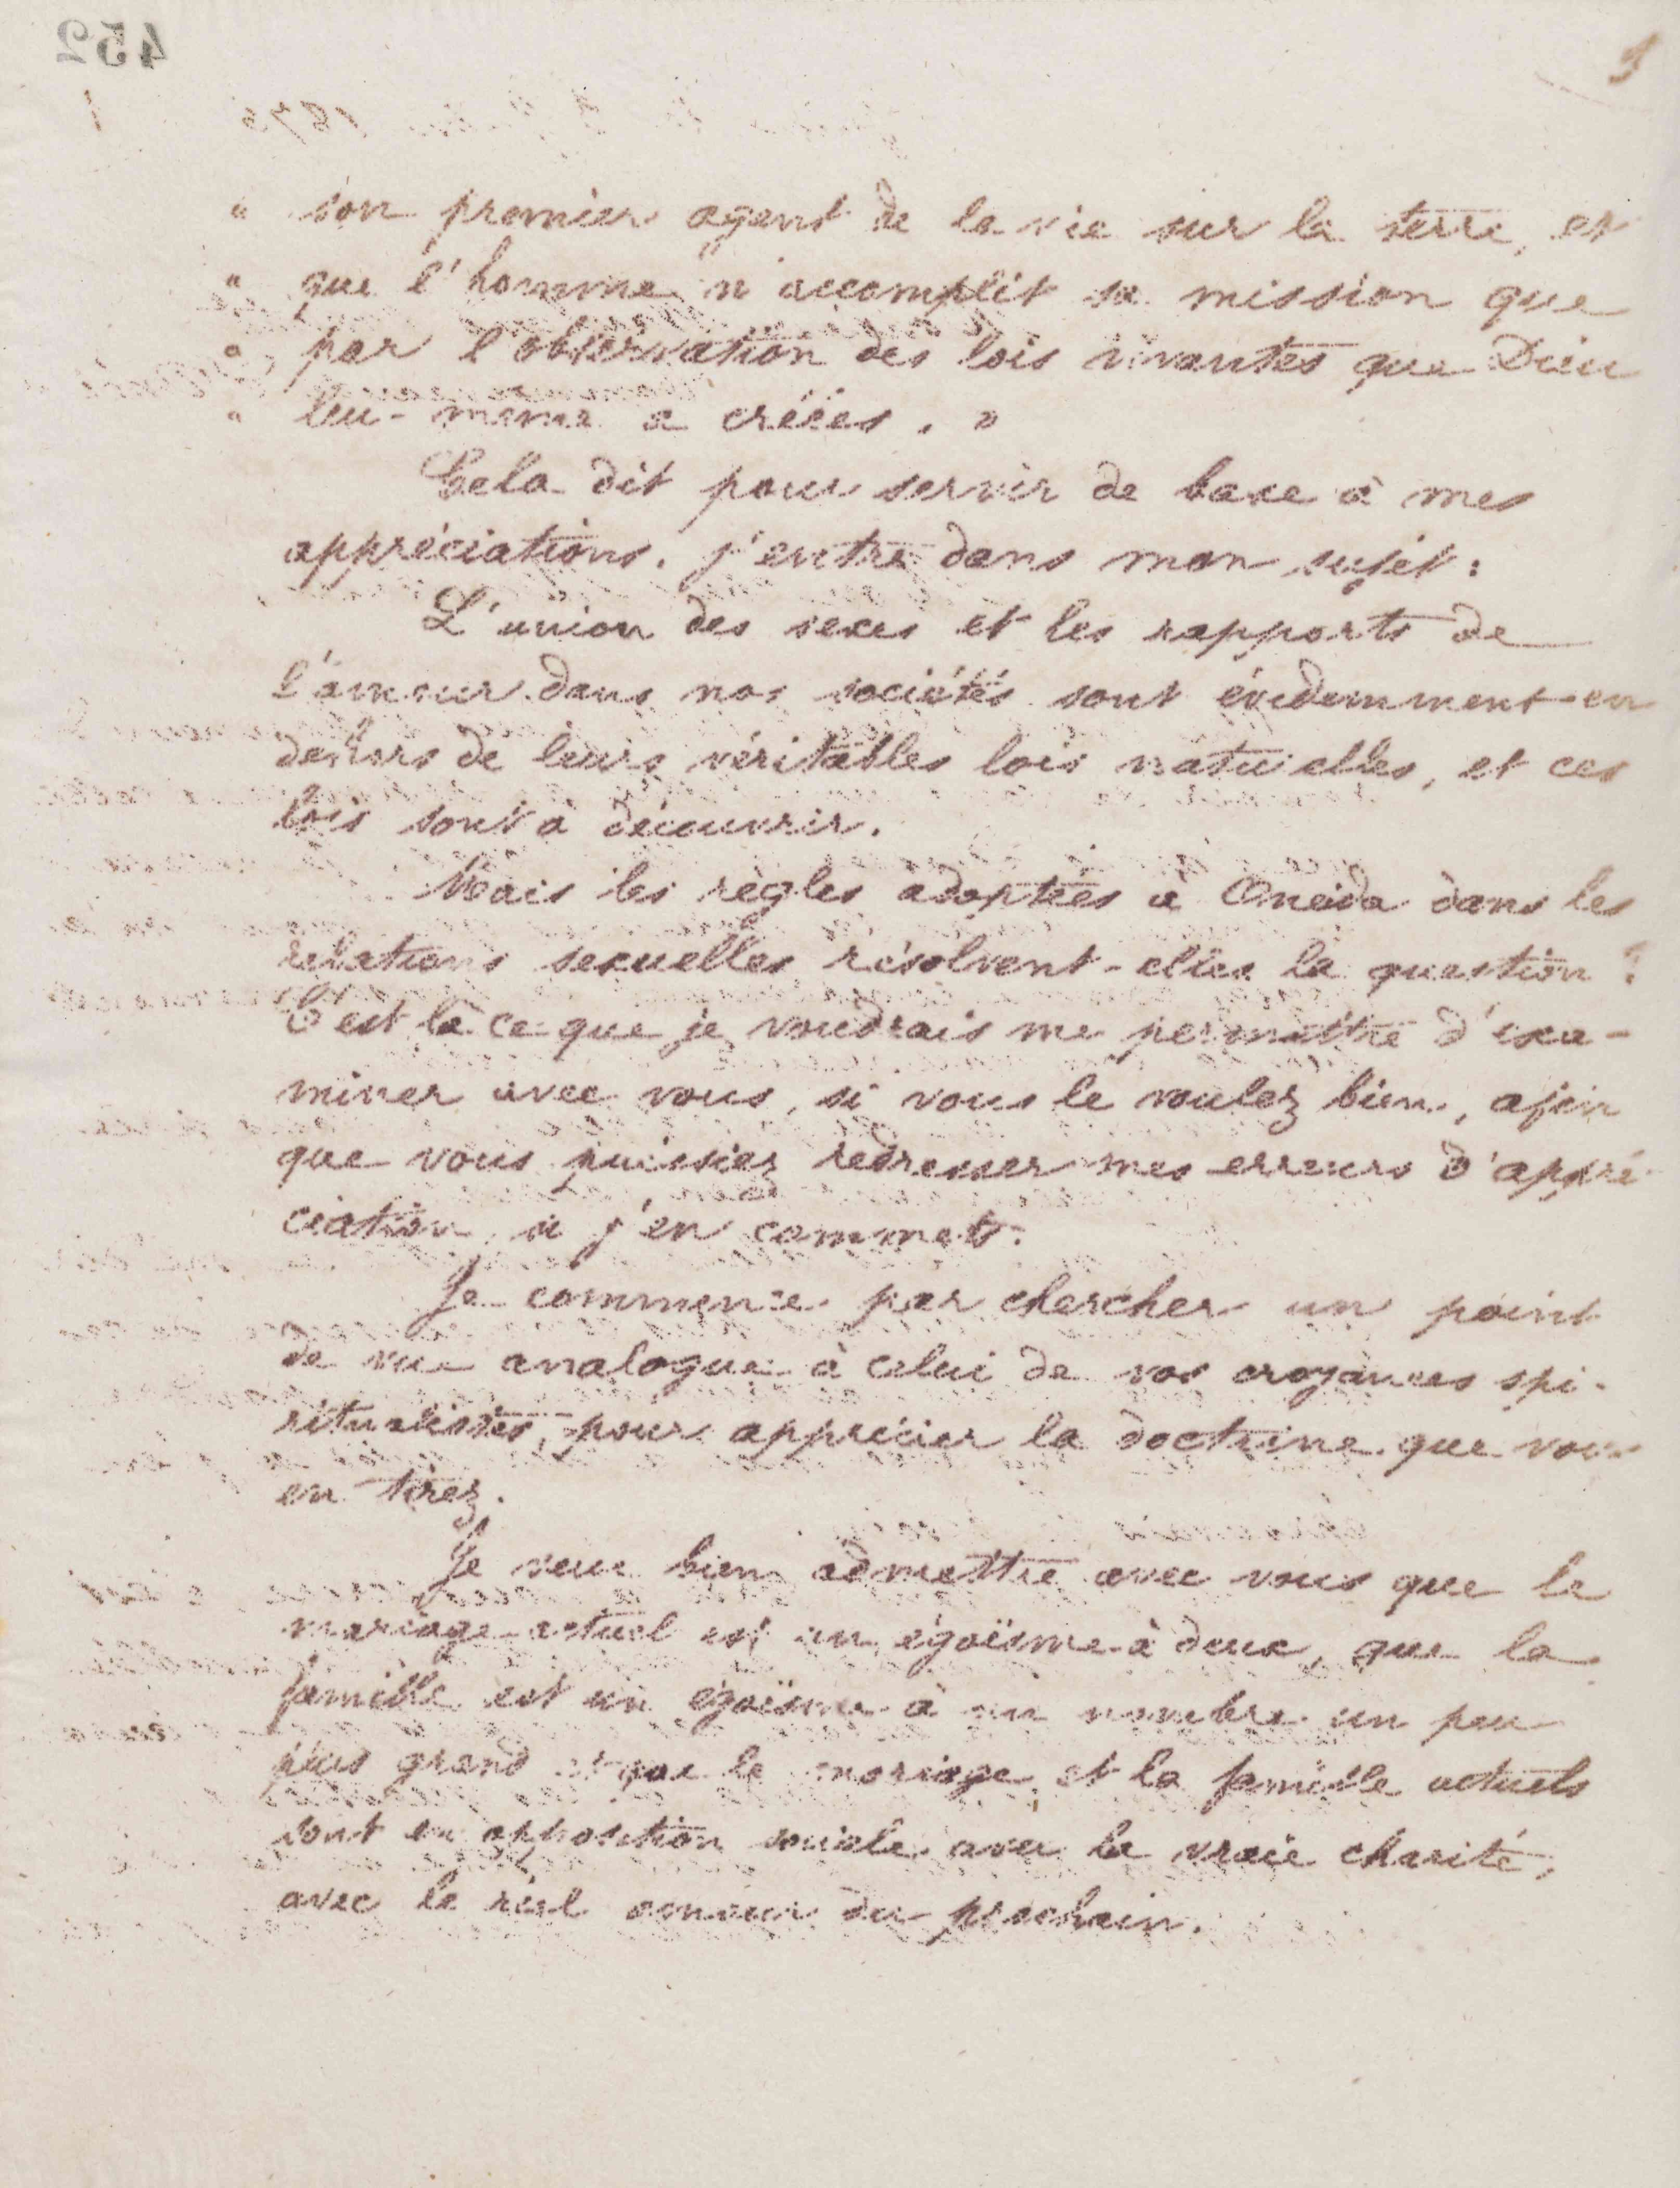 « son premier agent de la vie sur la terre, et
« que l'homme n'accomplit sa mission que
« par l'observation des lois vivantes que Dieu
« lui-même a créées. »
Cela dit pour servir de base à mes
appréciations, j'entre dans mon sujet :
L'union des sexes et les rapports de
l'amour dans nos sociétés sont évidemment en
dehors de leurs véritables lois naturelles, et ces
lois sont à découvrir.
Mais les règles adoptées à Oneida dans les
relations sexuelles résolvent-elles la question ?
C'est là ce que je voudrais me permettre d'exa-
miner avec vous, si vous le voulez bien, afin
que vous puissiez redresser mes erreurs d'appré-
ciation si j'en commets.
Je commence par chercher un point
de vue analogue à celui de vos croyances spi-
ritualistes, pour apprécier la doctrine que vous
en tirez.
Je veux bien admettre avec vous que le
mariage actuel est un égoïsme à deux, que la
famille est un égoïsme à un nombre un peu
plus grand et que le mariage et la famille actuels
sont en opposition sociale avec la vraie charité,
avec le réel amour du prochain.
452